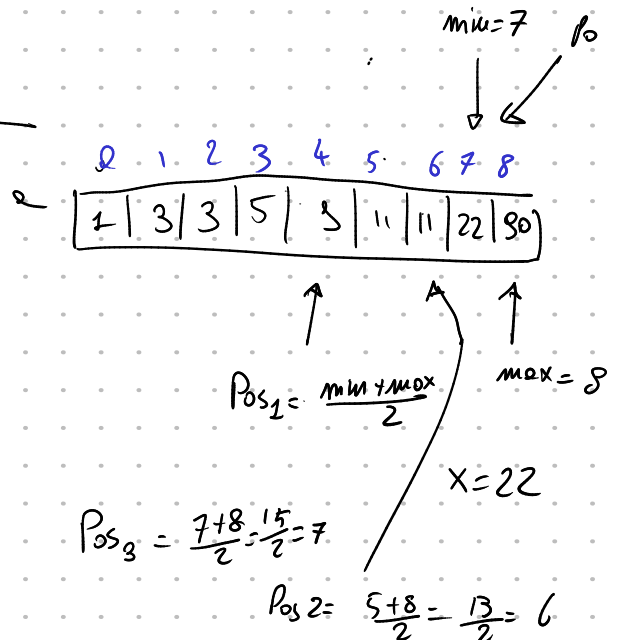 min=7
Po
0 1 2 3 4 5 6 7 8
a 1 3 3 5 9 11 11 22 90
Pos1= min+max/2
max=8
x=22
Pos3 = 7+8/2=15/2=7
Pos2= 5+8/2=13/2=6